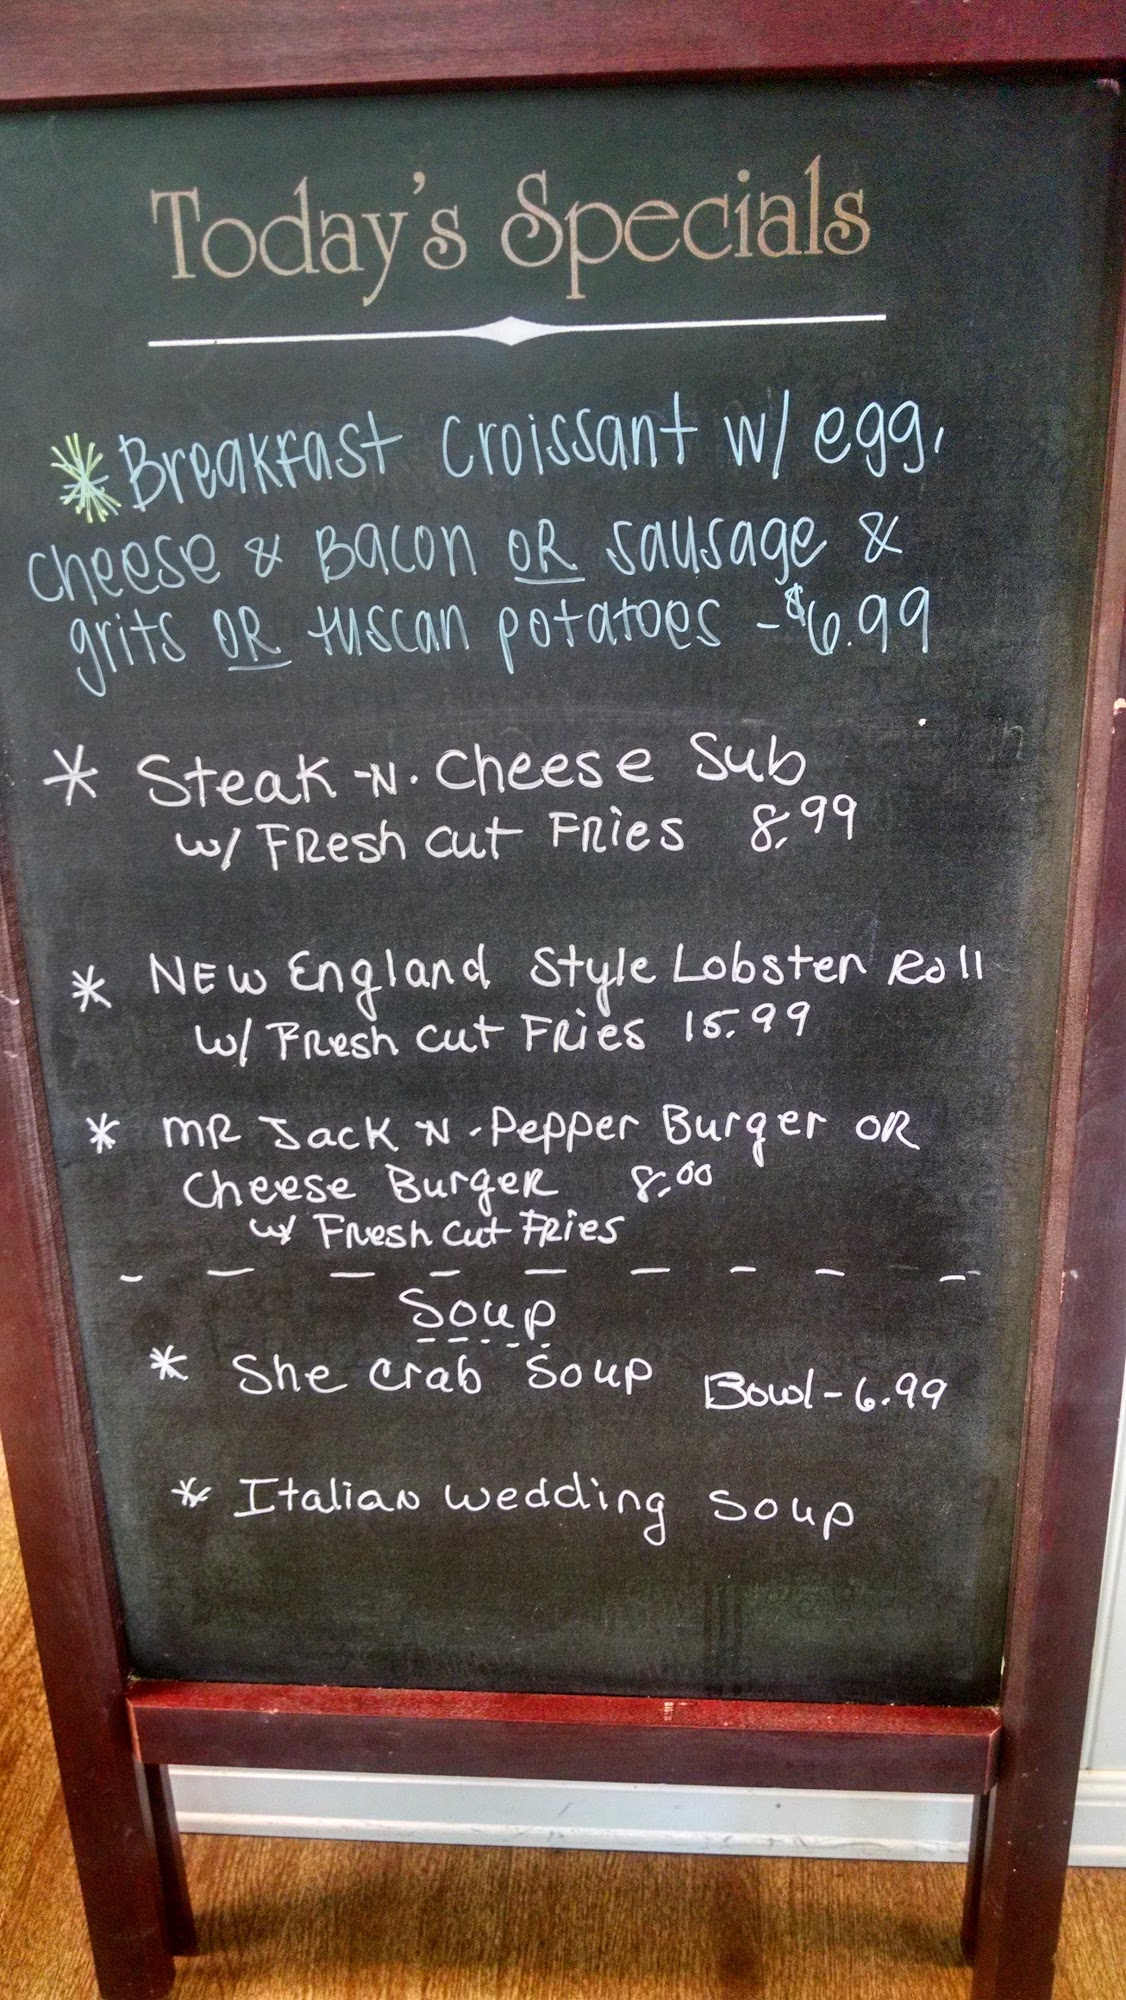 Today's Specials
* Breakfast Croissant w/ egg,
cheese & Bacon OR sausage &
grits OR tuscan potatoes - $6.99
* Steak -N- Cheese Sub
w/ Fresh cut Fries 8.99
* NEW England Style Lobster Roll
w/ Fresh cut Fries 15.99
* MR Jack -N- Pepper Burger OR
Cheese Burger 8.00
w/ Fresh cut Fries
Soup
* She Crab Soup Bowl - 6.99
* Italian Wedding Soup